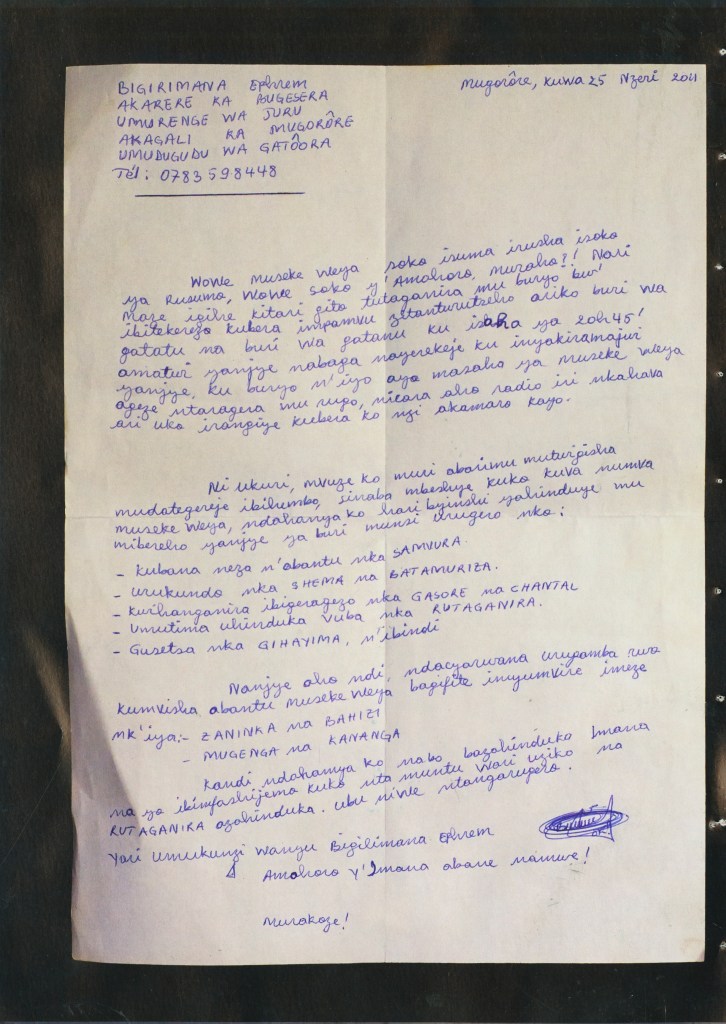 BIGIRIMANA Ephrem
Mugorôre, kuwa 25 Nzeri 2011
AKARERE KA BUGESERA
UMURENGE WA JURU
AKAGALI KA MUGORÔRE
UMUDUGUDU WA GATÔORA
Tél: 0783598448
Wowe Museke Weya soko isuma irusha isoko
ya Rusumo, Wowe soko y'Amahoro, muraho?! Nari
maze igihe kitari gito tutaganira mu buryo bw'
ibitekerezo kubera impamvu zitanturutseho ariko buri wa
gatatu na buri wa gatanu ku isaha ya 20h45'
amatwi yanjye nabaga nayerekeje ku inyakiramajwi
yanjye, ku buryo n'iyo ayo masaha ya museke weya
ageze ntaragera mu rugo, nicara aho radio iri nkahava
ari uko irangiye kubera ko nzi akamaro kayo.
Ni ukuri, mvuze ko muri abarimu mutwigisha
mudategereje ibihembo, sinaba mbeshye kuko kuva numva
museke weya, ndahamya ko hari byinshi yahinduye mu
mibereho yanjye ya buri munsi urugero nko:
- Kubana neza n'abantu nka SAMVURA.
- Urukundo nka SHEMA na BATAMURIZA.
- Kwihanganira ibigeragezo nka GASORE na CHANTAL
- Umutima uhinduka Vuba nka RUTAGANIRA.
- Gusetsa nka GIHAYIMA, n'ibindi
Nanjye aho ndi, ndacyarwana urugamba rwo
kumvisha abantu museke weya bagifite imyumvire imeze
nk'iya:- ZANINKA na BAHIZI
- MUGENGA na KANANGA
Kandi ndahamya ko nabo bazahinduka Imana
na yo ibimfashijemo kuko nta muntu wari uziko na
RUTAGANIRA azahinduka. ubu niwe ntangarugero.
Yari umukunzi wanyu Bigilimana Ephrem
Amahoro y'Imana abane namwe!
Murakoze!